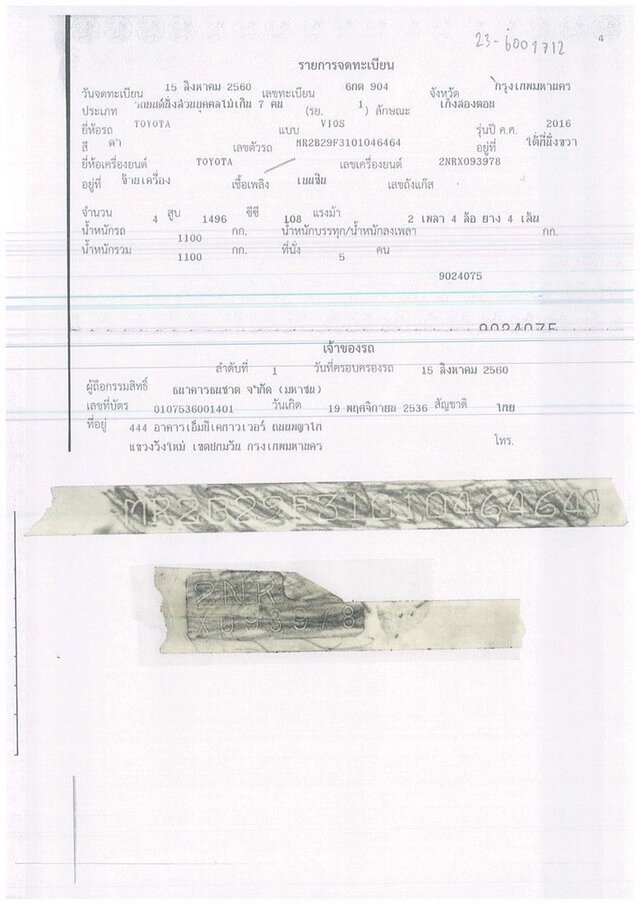 23-6001712 4
รายการจดทะเบียน
วันจดทะเบียน 15 สิงหาคม 2560 เลขทะเบียน 6กต 904 จังหวัด กรุงเทพมหานคร
ประเภท รถยนต์นั่งส่วนบุคคลไม่เกิน 7 คน (รย. 1 ) ลักษณะ เก๋งสองตอน
ยี่ห้อรถ TOYOTA แบบ VIOS รุ่นปี ค.ศ. 2016
สี ดำ เลขตัวรถ MR2B29F3101046464 อยู่ที่ ใต้ที่นั่งขวา
ยี่ห้อเครื่องยนต์ TOYOTA เลขเครื่องยนต์ 2NRX093978
อยู่ที่ ซ้ายเครื่อง เชื้อเพลิง เบนซิน เลขถังแก๊ส
จำนวน 4 สูบ 1496 ซีซี 108 แรงม้า 2 เพลา 4 ล้อ ยาง 4 เส้น
น้ำหนักรถ 1100 กก. น้ำหนักบรรทุก/น้ำหนักลงเพลา กก.
น้ำหนักรวม 1100 กก. ที่นั่ง 5 คน
9024075
9024075
เจ้าของรถ
ลำดับที่ 1 วันที่ครอบครองรถ 15 สิงหาคม 2560
ผู้ถือกรรมสิทธิ์ ธนาคารธนชาต จำกัด (มหาชน)
เลขที่บัตร 0107536001401 วันเกิด 19 พฤศจิกายน 2536 สัญชาติ ไทย
ที่อยู่ 444 อาคารเอ็มบีเคทาวเวอร์ ถนนพญาไท
แขวงวังใหม่ เขตปทุมวัน กรุงเทพมหานคร โทร.
2NR